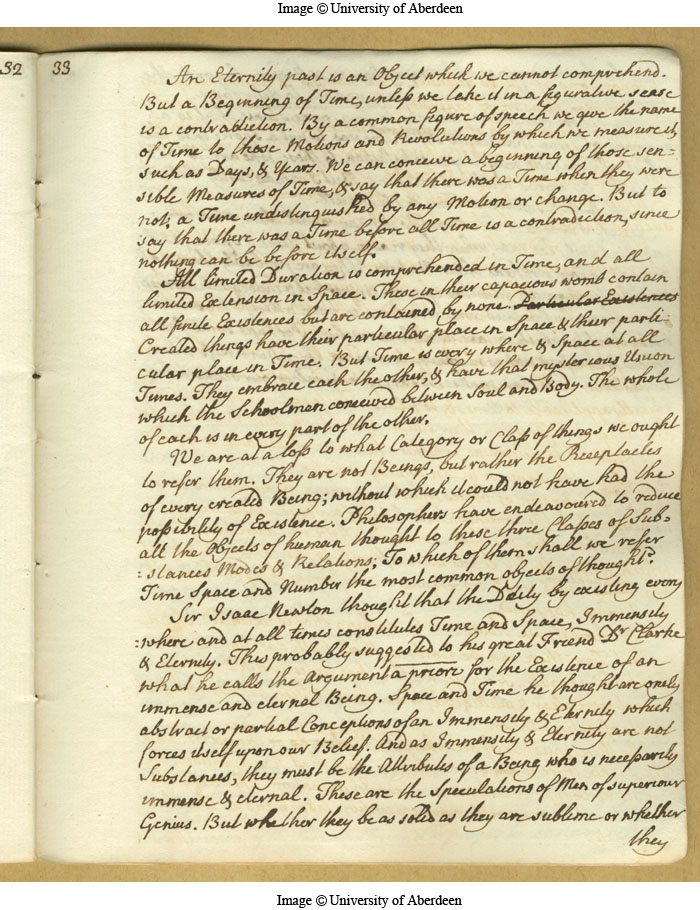 Image © University of Aberdeen
32
33
An Eternity past is an Object which we cannot comprehend.
But a Beginning of Time, unless we take it in a figurative sense
is a contradiction. By a common figure of speech we give the name
of Time to those Motions and Revolutions by which we measure it,
such as Days, & Years. We can conceive a beginning of those sen=
sible Measures of Time, & say that there was a Time when they were
not; a Time undistinguished by any Motion or change. But to
say that there was a Time before all Time is a contradiction, since
nothing can be before itself.
All limited Duration is comprehended in Time, and all
limited Extension in Space. These in their capacious womb contain
all finite Existences but are contained by none. Particular Existences
Created things have their particular place in Space & their parti-
cular place in Time. But Time is every where & Space at all
Times. They embrace each the other, & have that mysterious Union
which the Schoolmen conceived between Soul and Body. The whole
of each is in every part of the other.
We are at a loss to what Category or Class of things we ought
to refer them. They are not Beings, but rather the Receptacles
of every created Being; without which it could not have had the
possibility of Existence. Philosophers have endeavoured to reduce
all the Objects of human thought to these three Classes of Sub=
=stances Modes & Relations; To which of them shall we refer
Time Space and Number the most common objects of thought?
Sir Isaac Newton thought that the Deity by existing every
=where and at all times constitutes Time and Space, Immensity
& Eternity. This probably suggested to his great Friend Dr Clarke
what he calls the Argument a priore for the Existence of an
immense and eternal Being. Space and Time he thought are onely
abstract or partial Conceptions of an Immensity & Eternity which
forces itself upon our Belief. And as Immensity & Eternity are not
Substances, they must be the Attributes of a Being who is necessarily
immense & eternal. These are the Speculations of Men of superiour
Genius. But whether they be as solid as they are sublime or whether
they
Image © University of Aberdeen